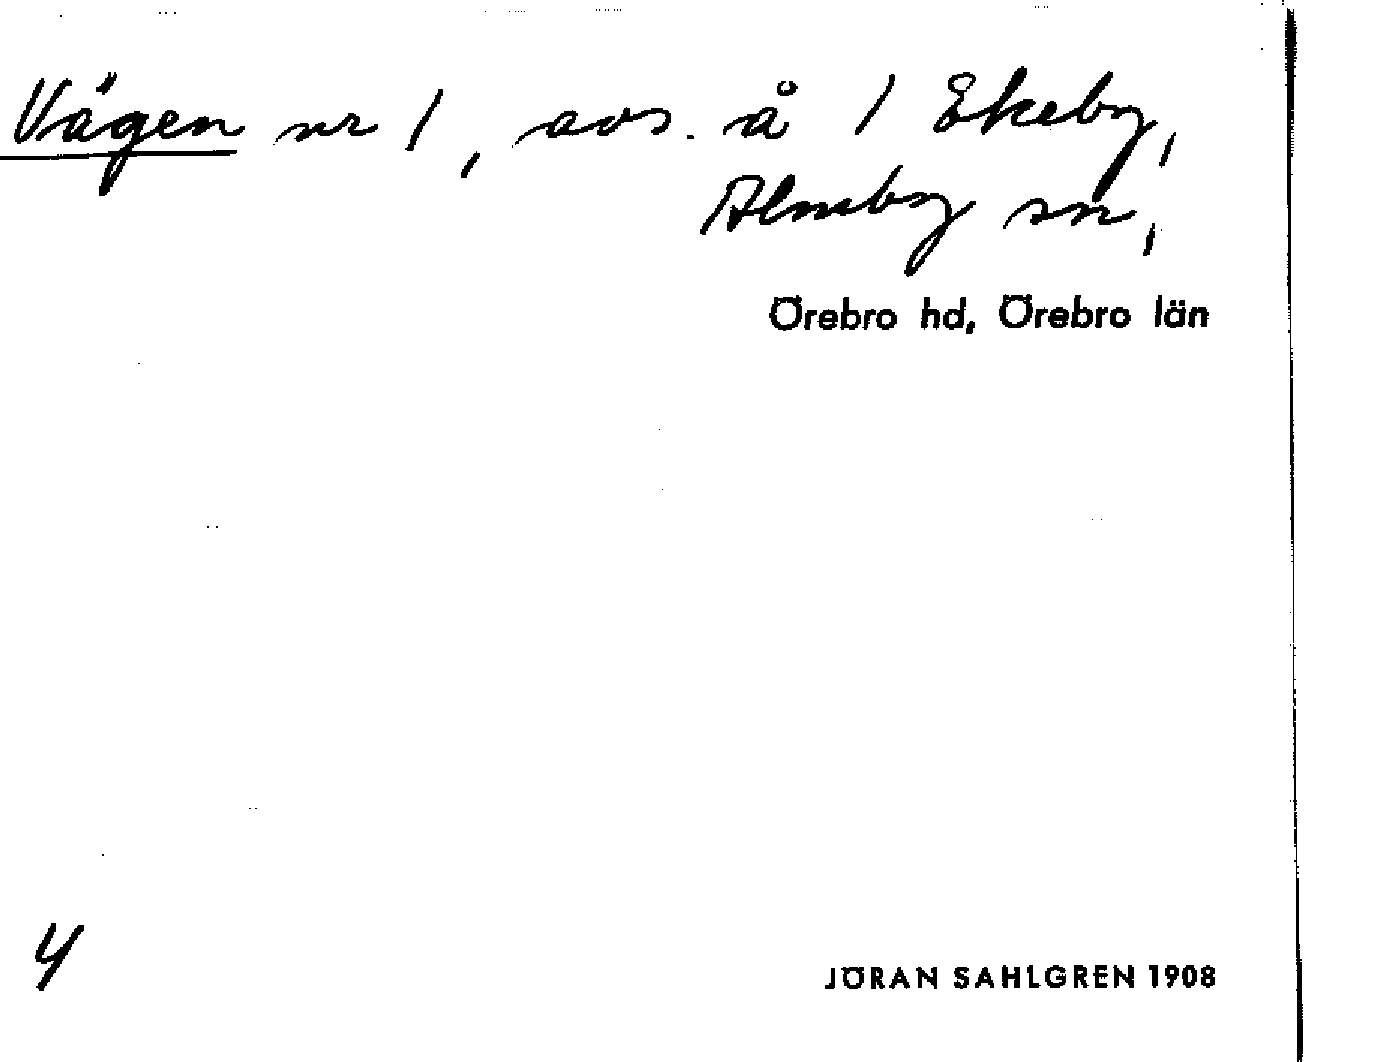 Vägen nr 1, avs. å 1 Ekeby,
Almby sn,
Örebro hd, Örebro län
4
JÖRAN SAHLGREN 1908